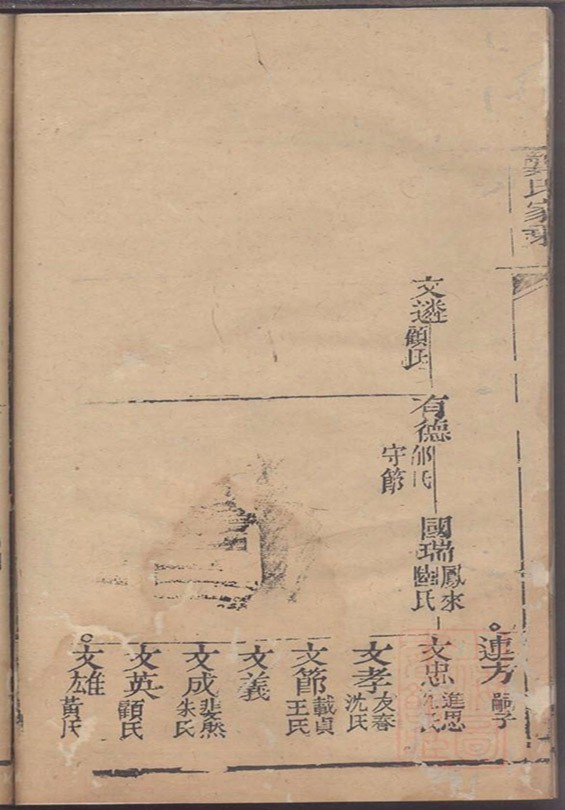 龔氏家乘
連方 嗣子
文遴 顧氏
有德 邰氏 守節
國瑞 鳳來 陸氏
文忠 進思 沈氏
文孝 友春 沈氏
文節 載貞 王氏
文義
文成 斐然 朱氏
文英 顧氏
文雄 黃氏